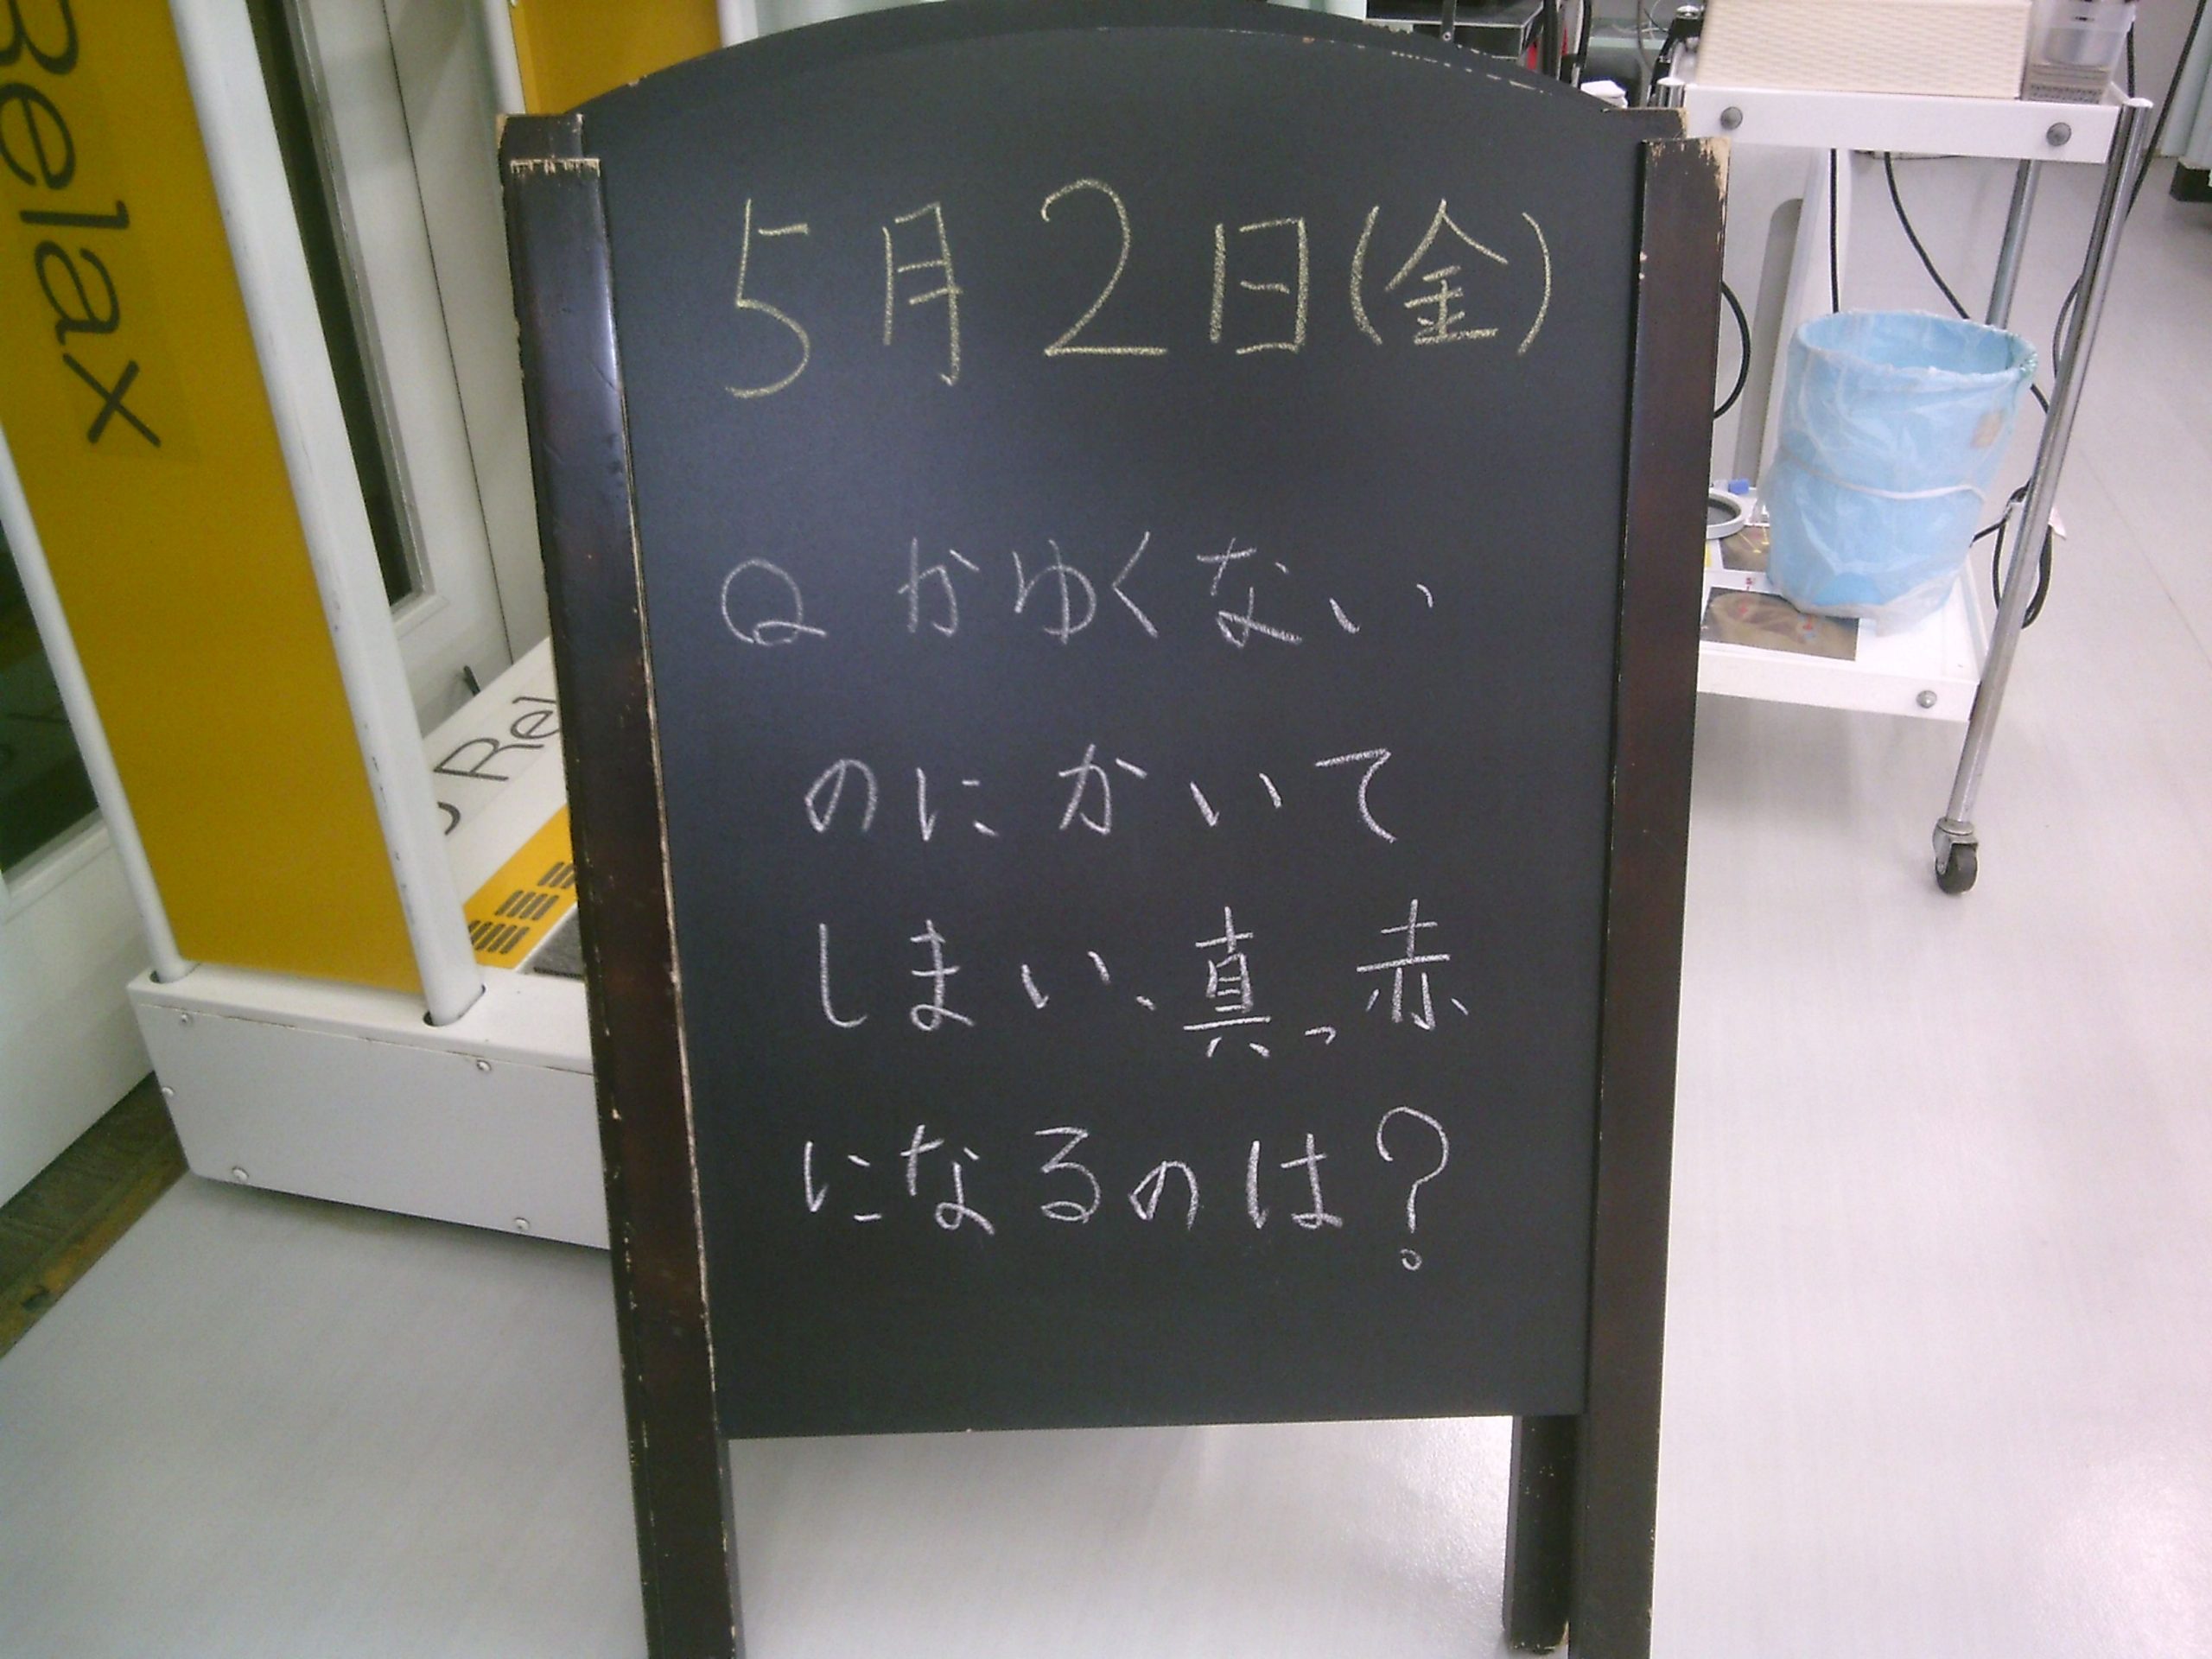 Relax
5月2日(金)
Q かゆくない
のにかいて
しまい、真っ赤
になるのは?
Rel